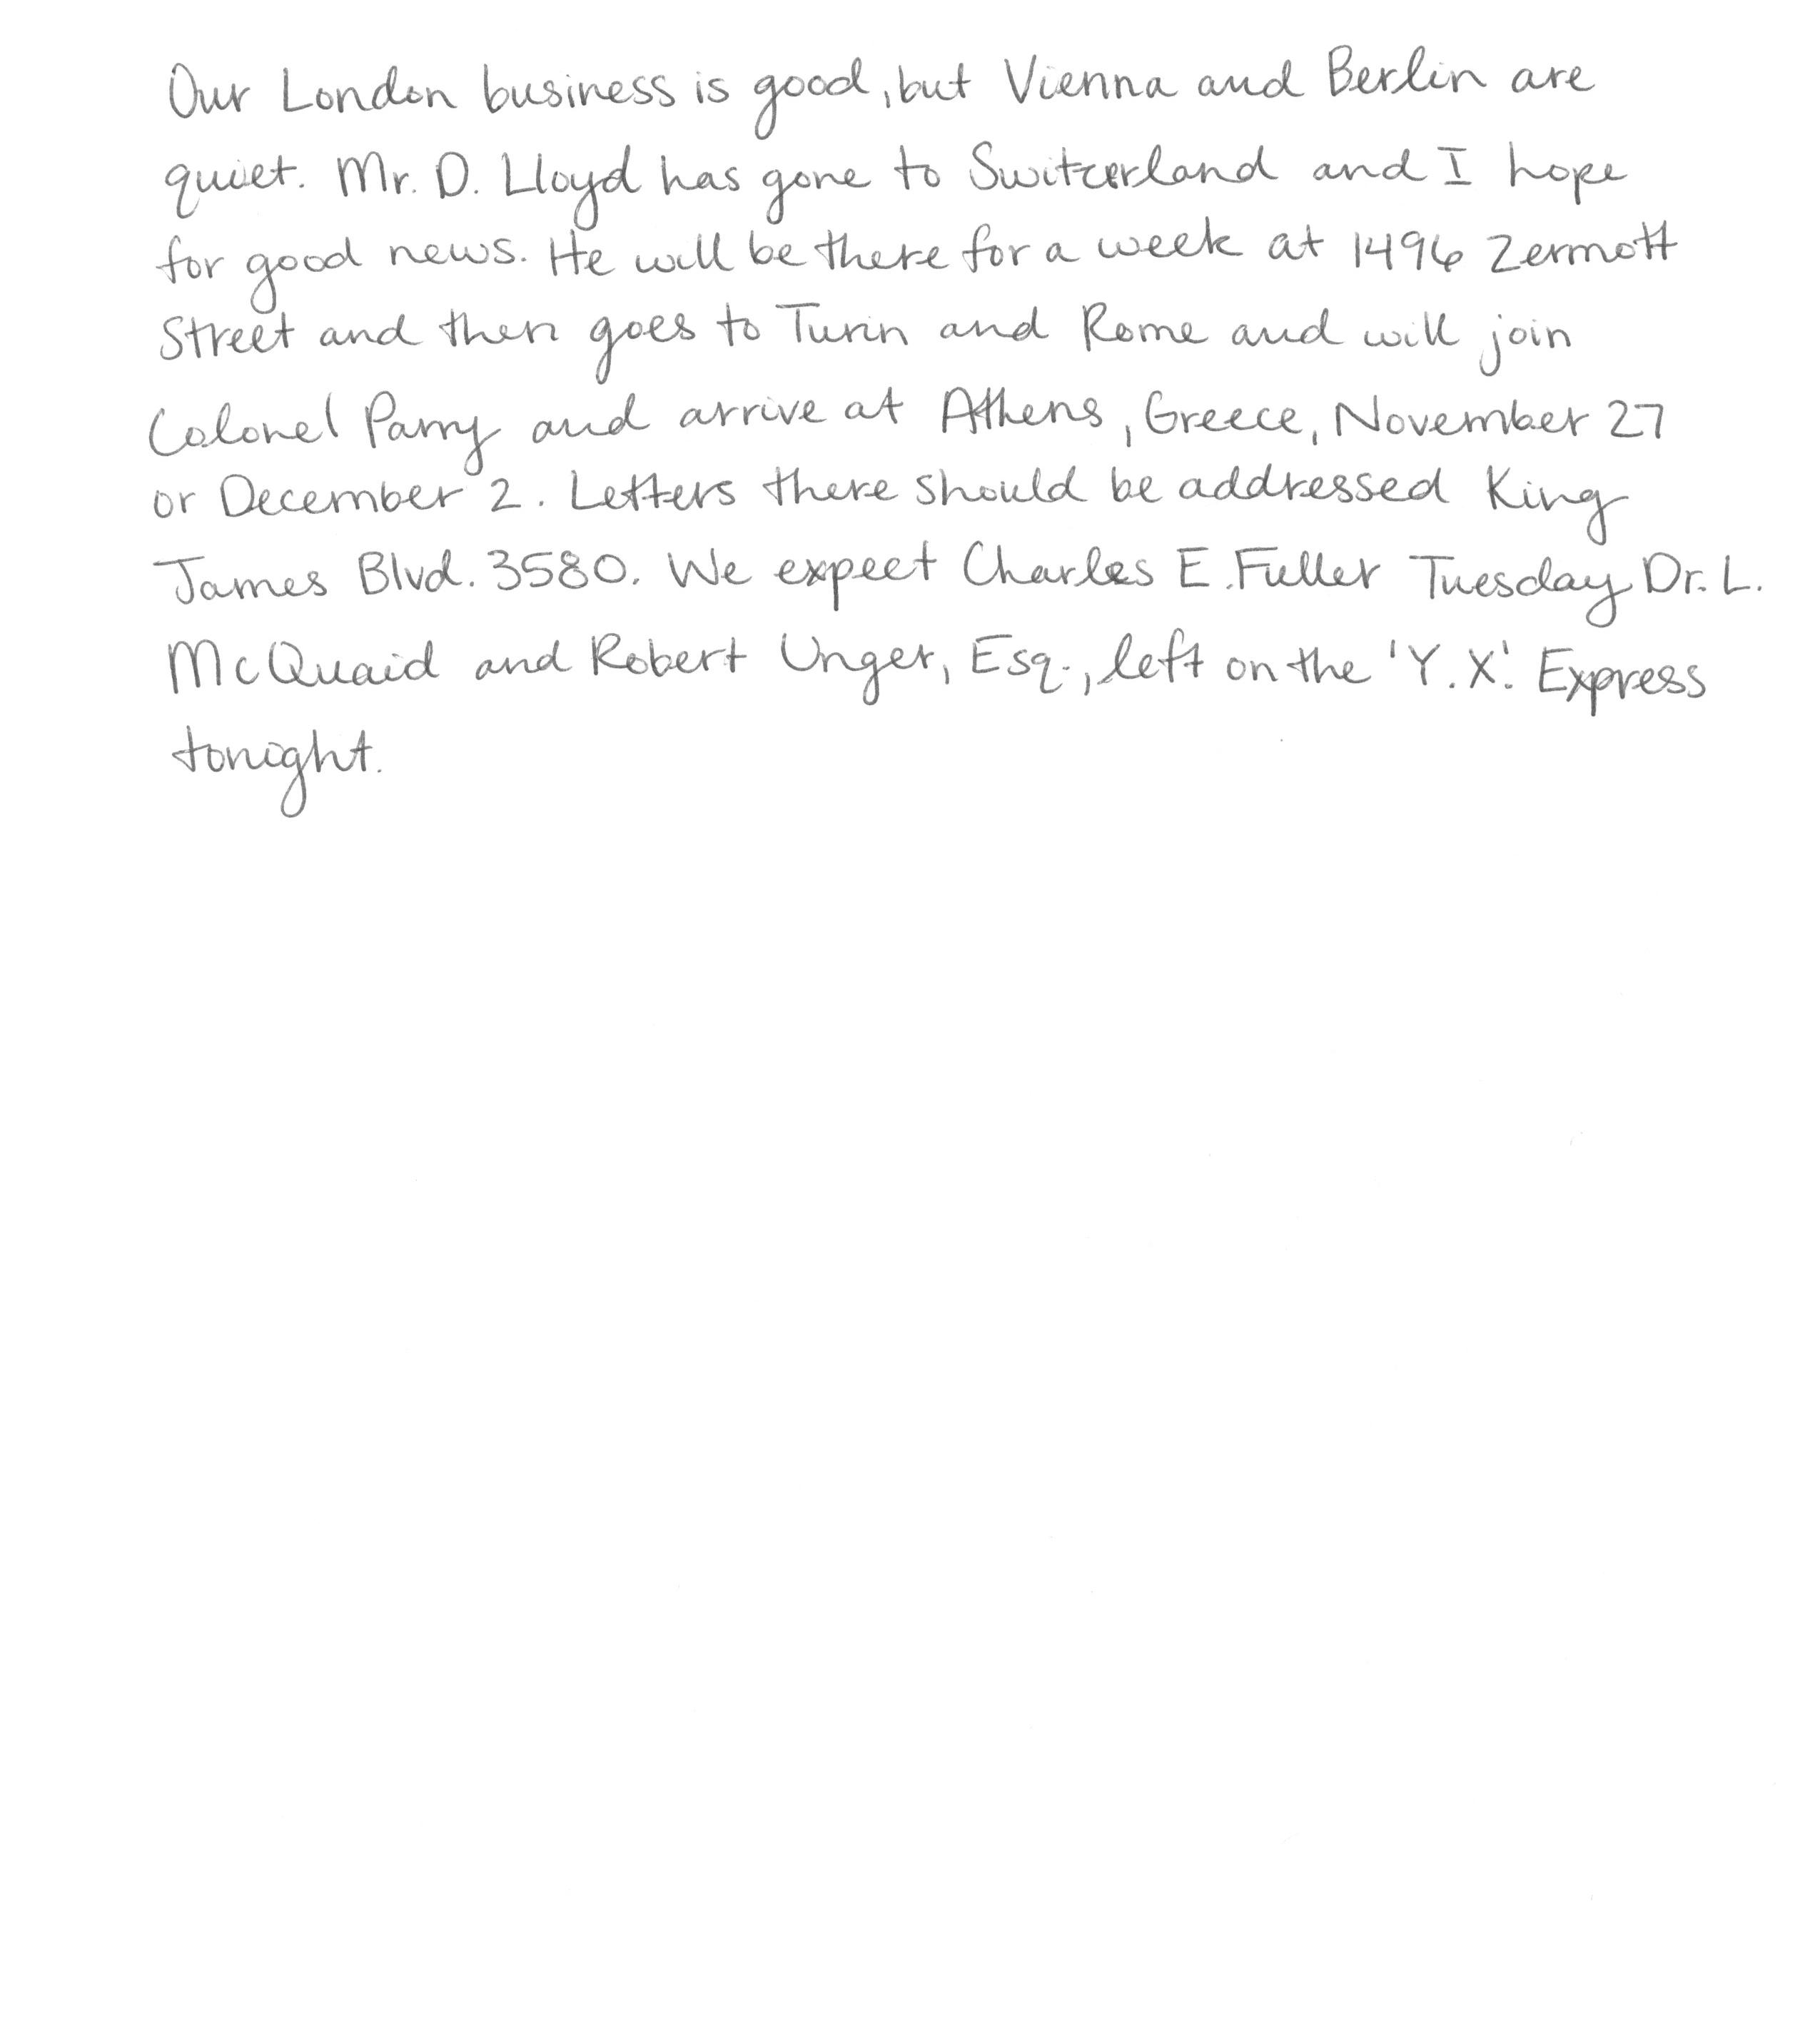 Our London business is good, but Vienna and Berlin are
quiet. Mr. D. Lloyd has gone to Switzerland and I hope
for good news. He will be there for a week at 1496 Zermott
Street and then goes to Turin and Rome and will join
Colonel Parry and arrive at Athens, Greece, November 27
or December 2. Letters there should be addressed King
James Blvd. 3580. We expect Charles E. Fuller Tuesday Dr. L.
McQuaid and Robert Unger, Esq., left on the 'Y.X.' Express
tonight.